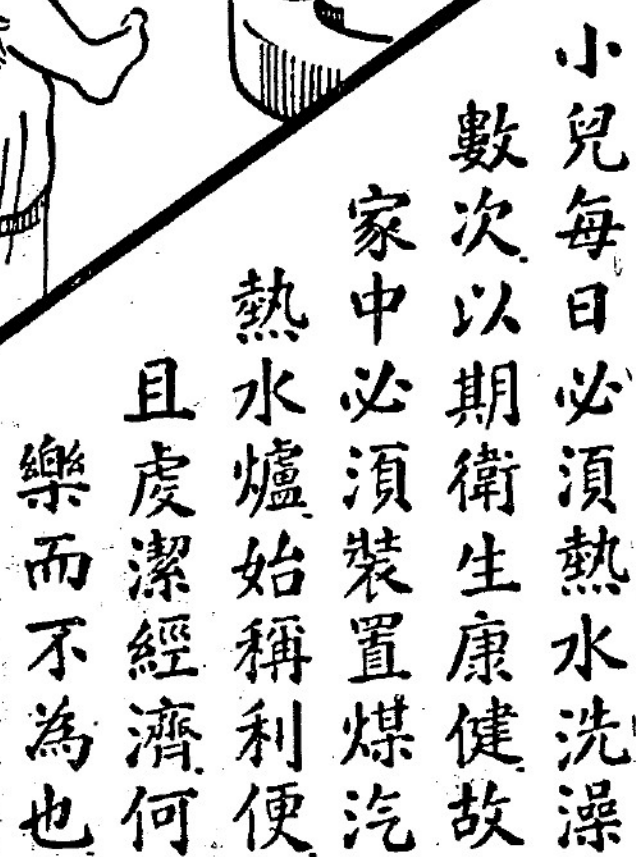 小兒每日必湏熱水洗澡
數次.以期衛生康健.故
家中必湏裝置煤汽
熱水爐.始稱利便.
且虔潔經濟.何
樂而不為也.